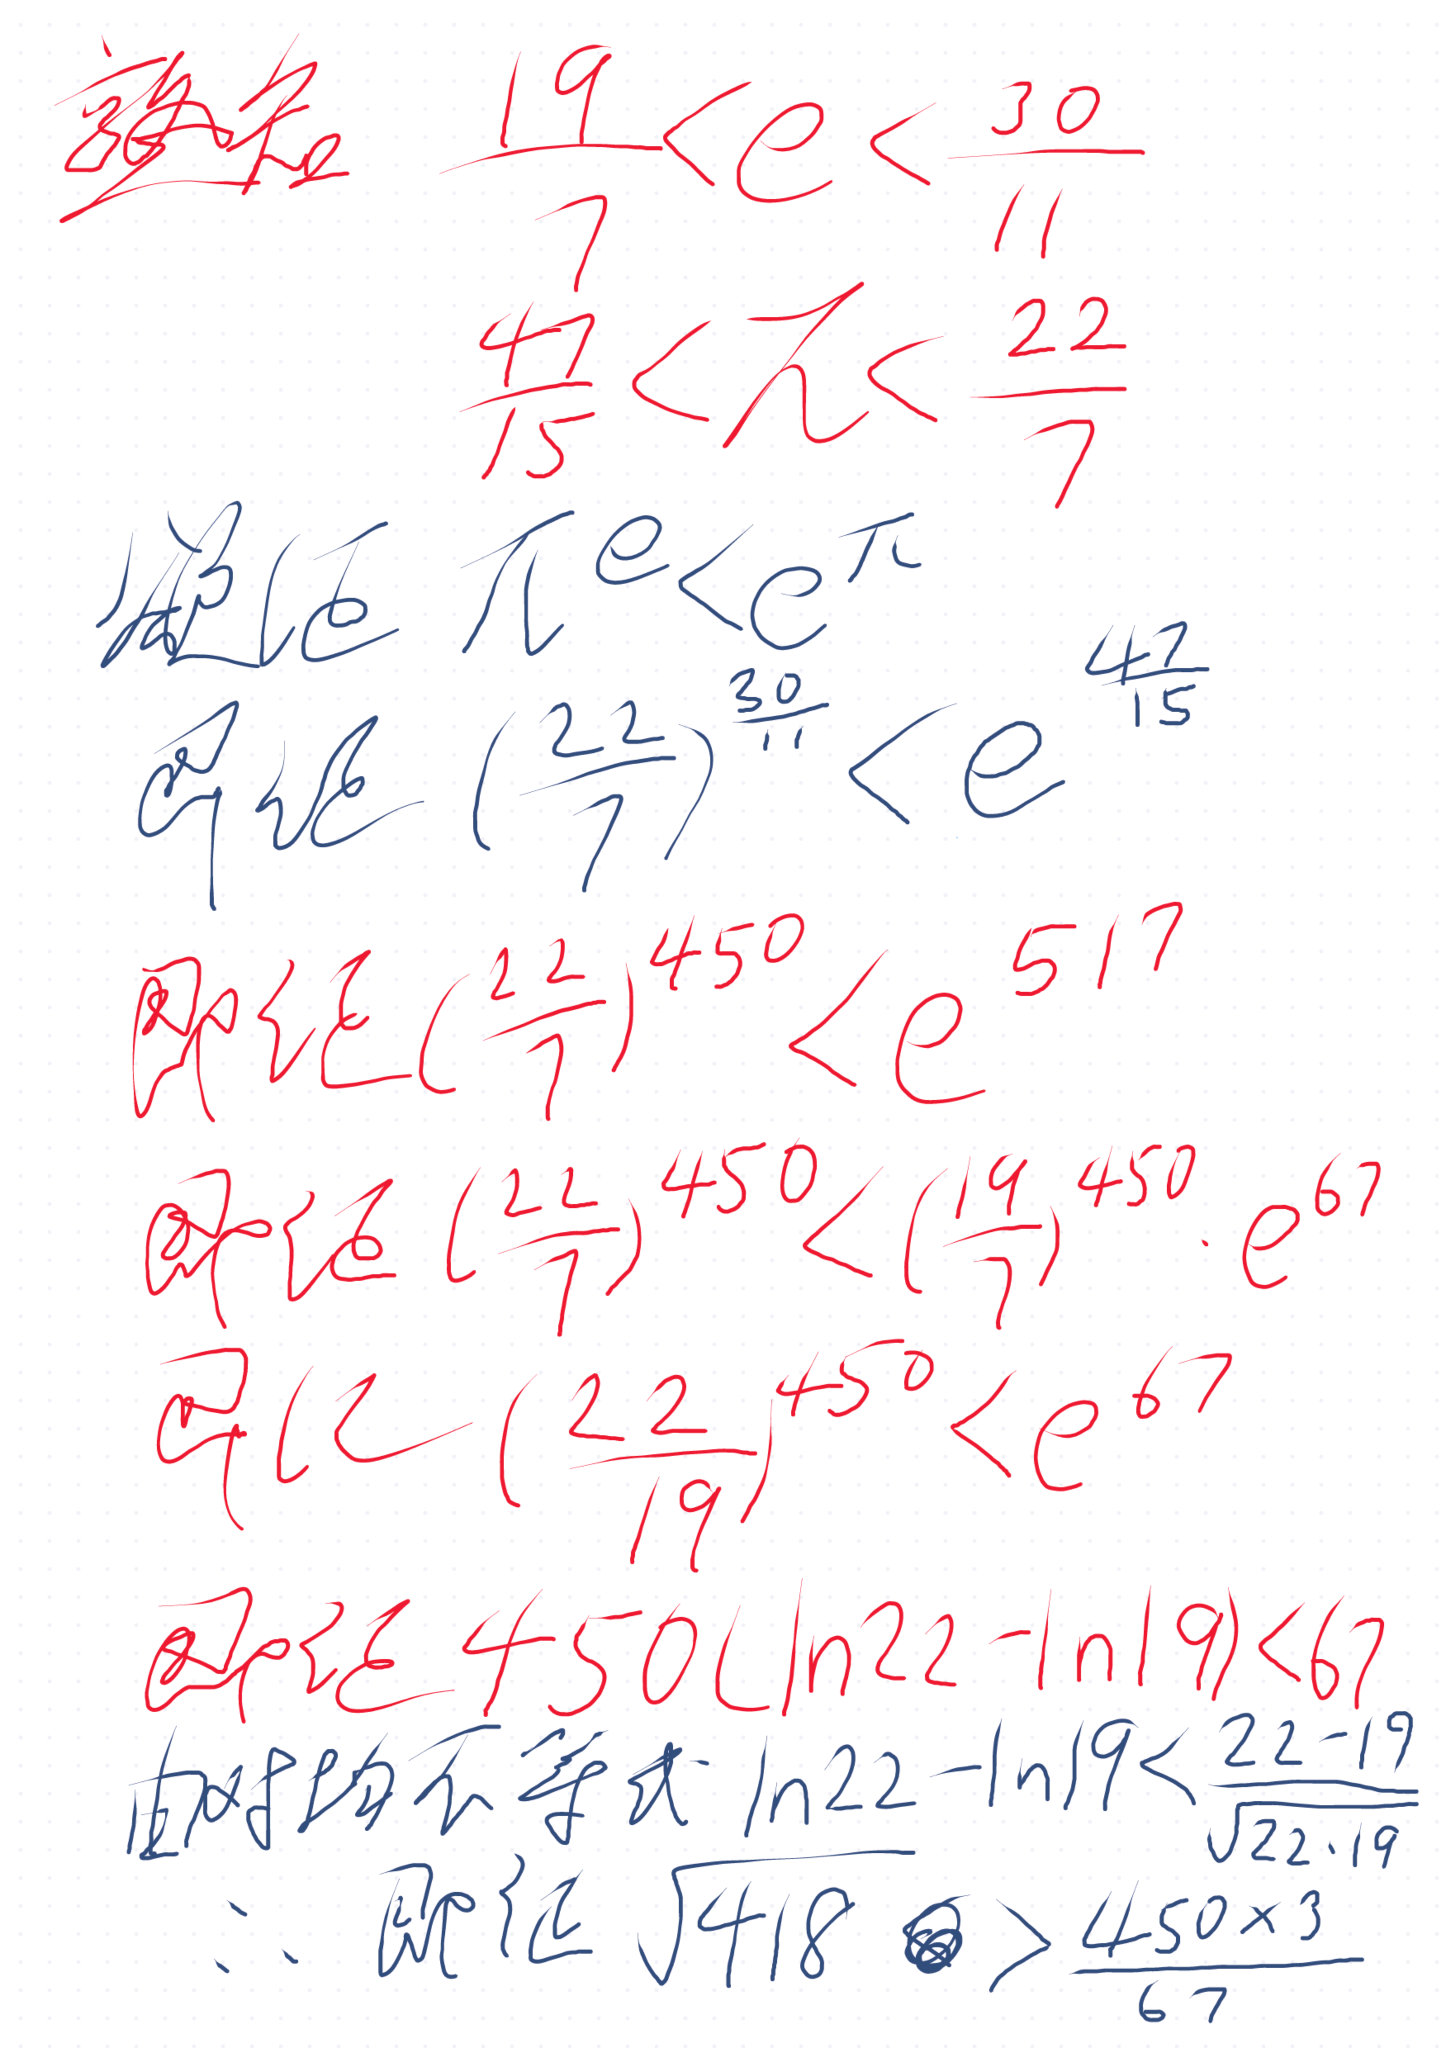 易知 19/7 < e < 30/11
47/15 < π < 22/7
欲证 π^e < e^π
即证 (22/7)^(30/11) < e^(47/15)
即证 (22/7)^450 < e^517
即证 (22/7)^450 < (19/7)^450 · e^67
即证 (22/19)^450 < e^67
即证 450(ln22 - ln19) < 67
由对均不等式 ln22 - ln19 < (22-19)/√(22·19)
∴ 即证 √418 > (450×3)/67